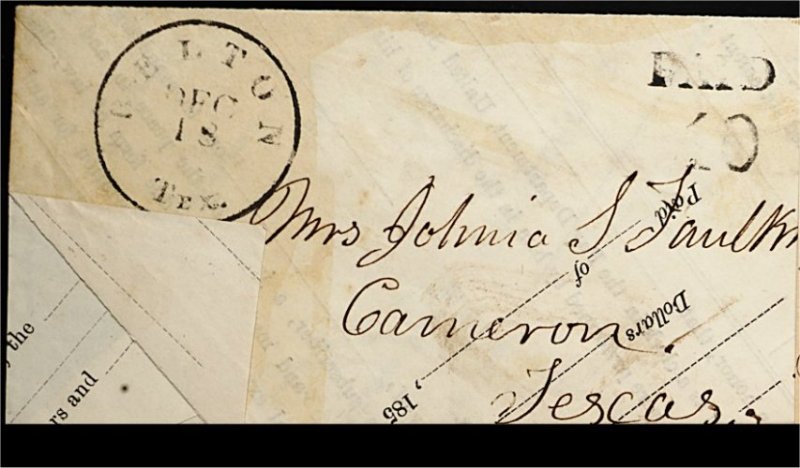 BELTON
DEC
18
Tex.
PAID
10
Mrs Johnia S Faulkn
Cameron.
Texas.
Paid
of
Dollars
, 185
y the
rs and